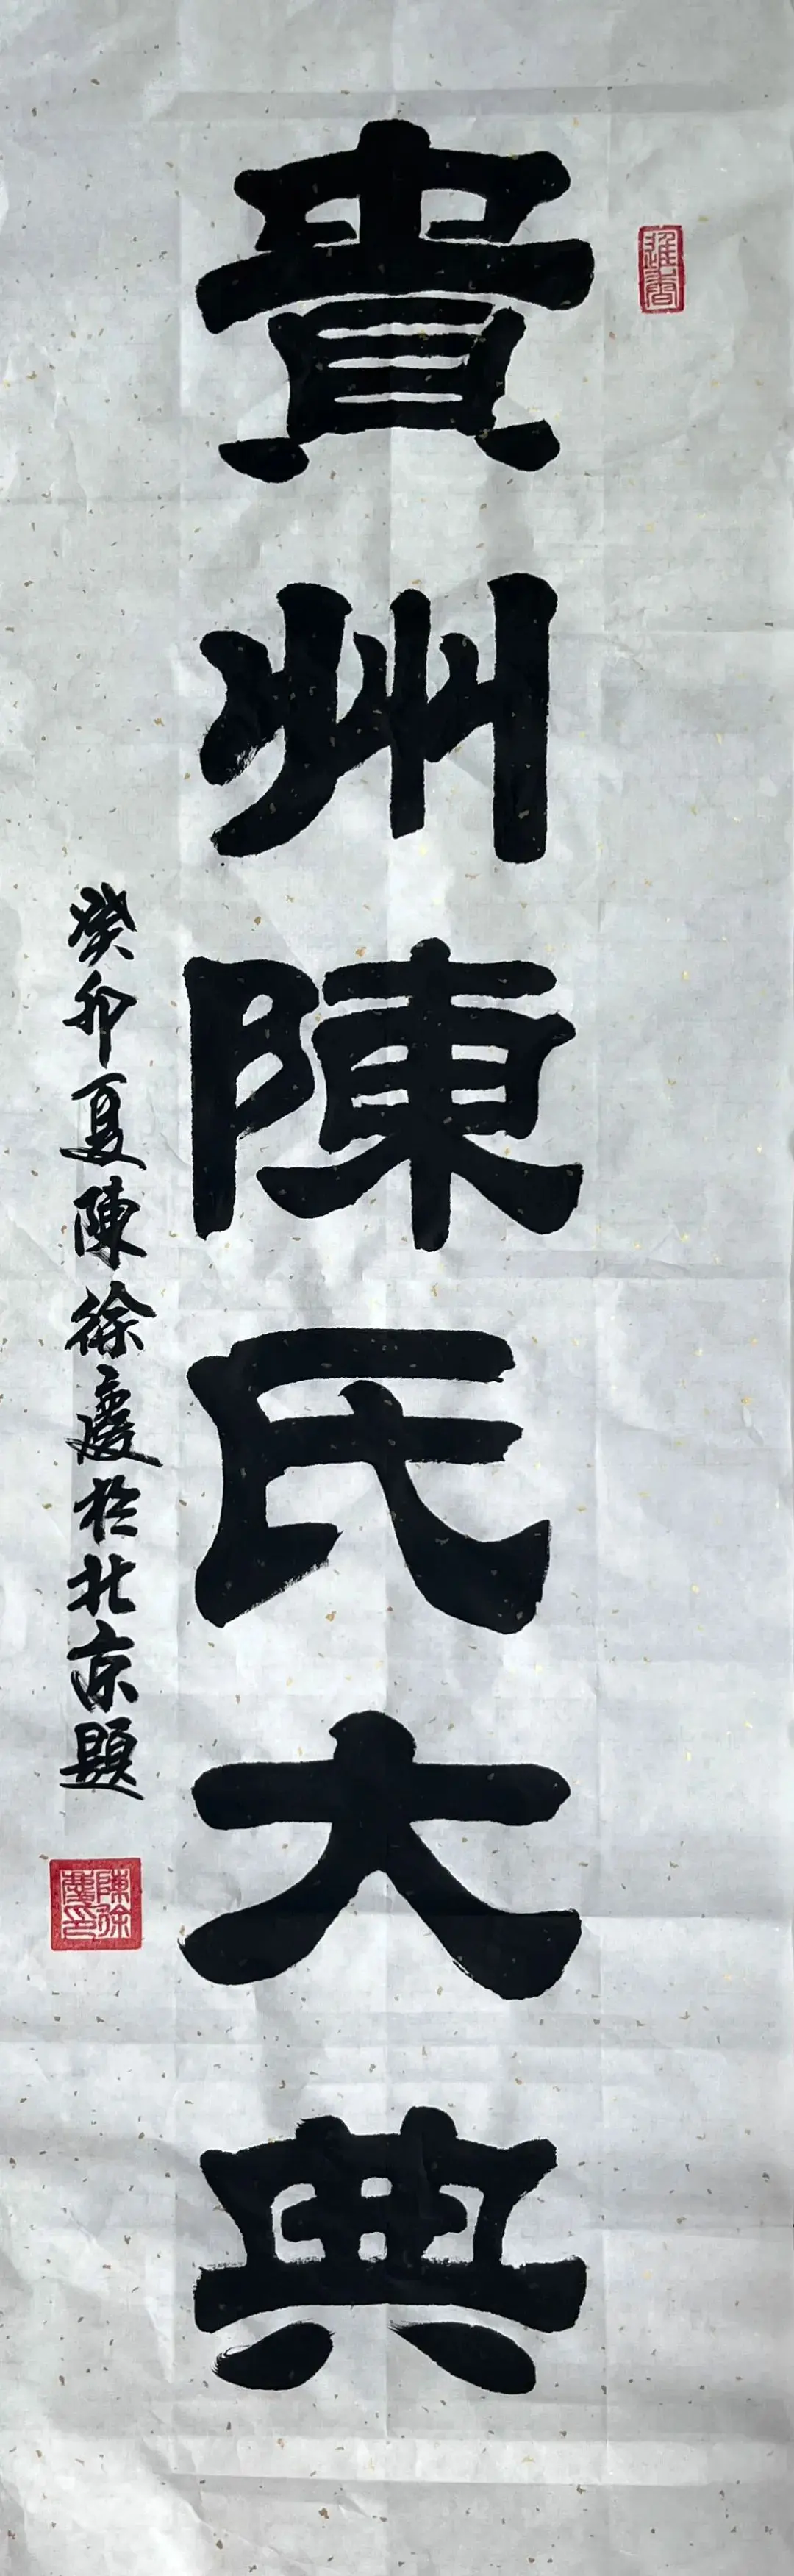 貴州陳氏大典
癸卯夏陳徐慶於北京題
陳徐慶印